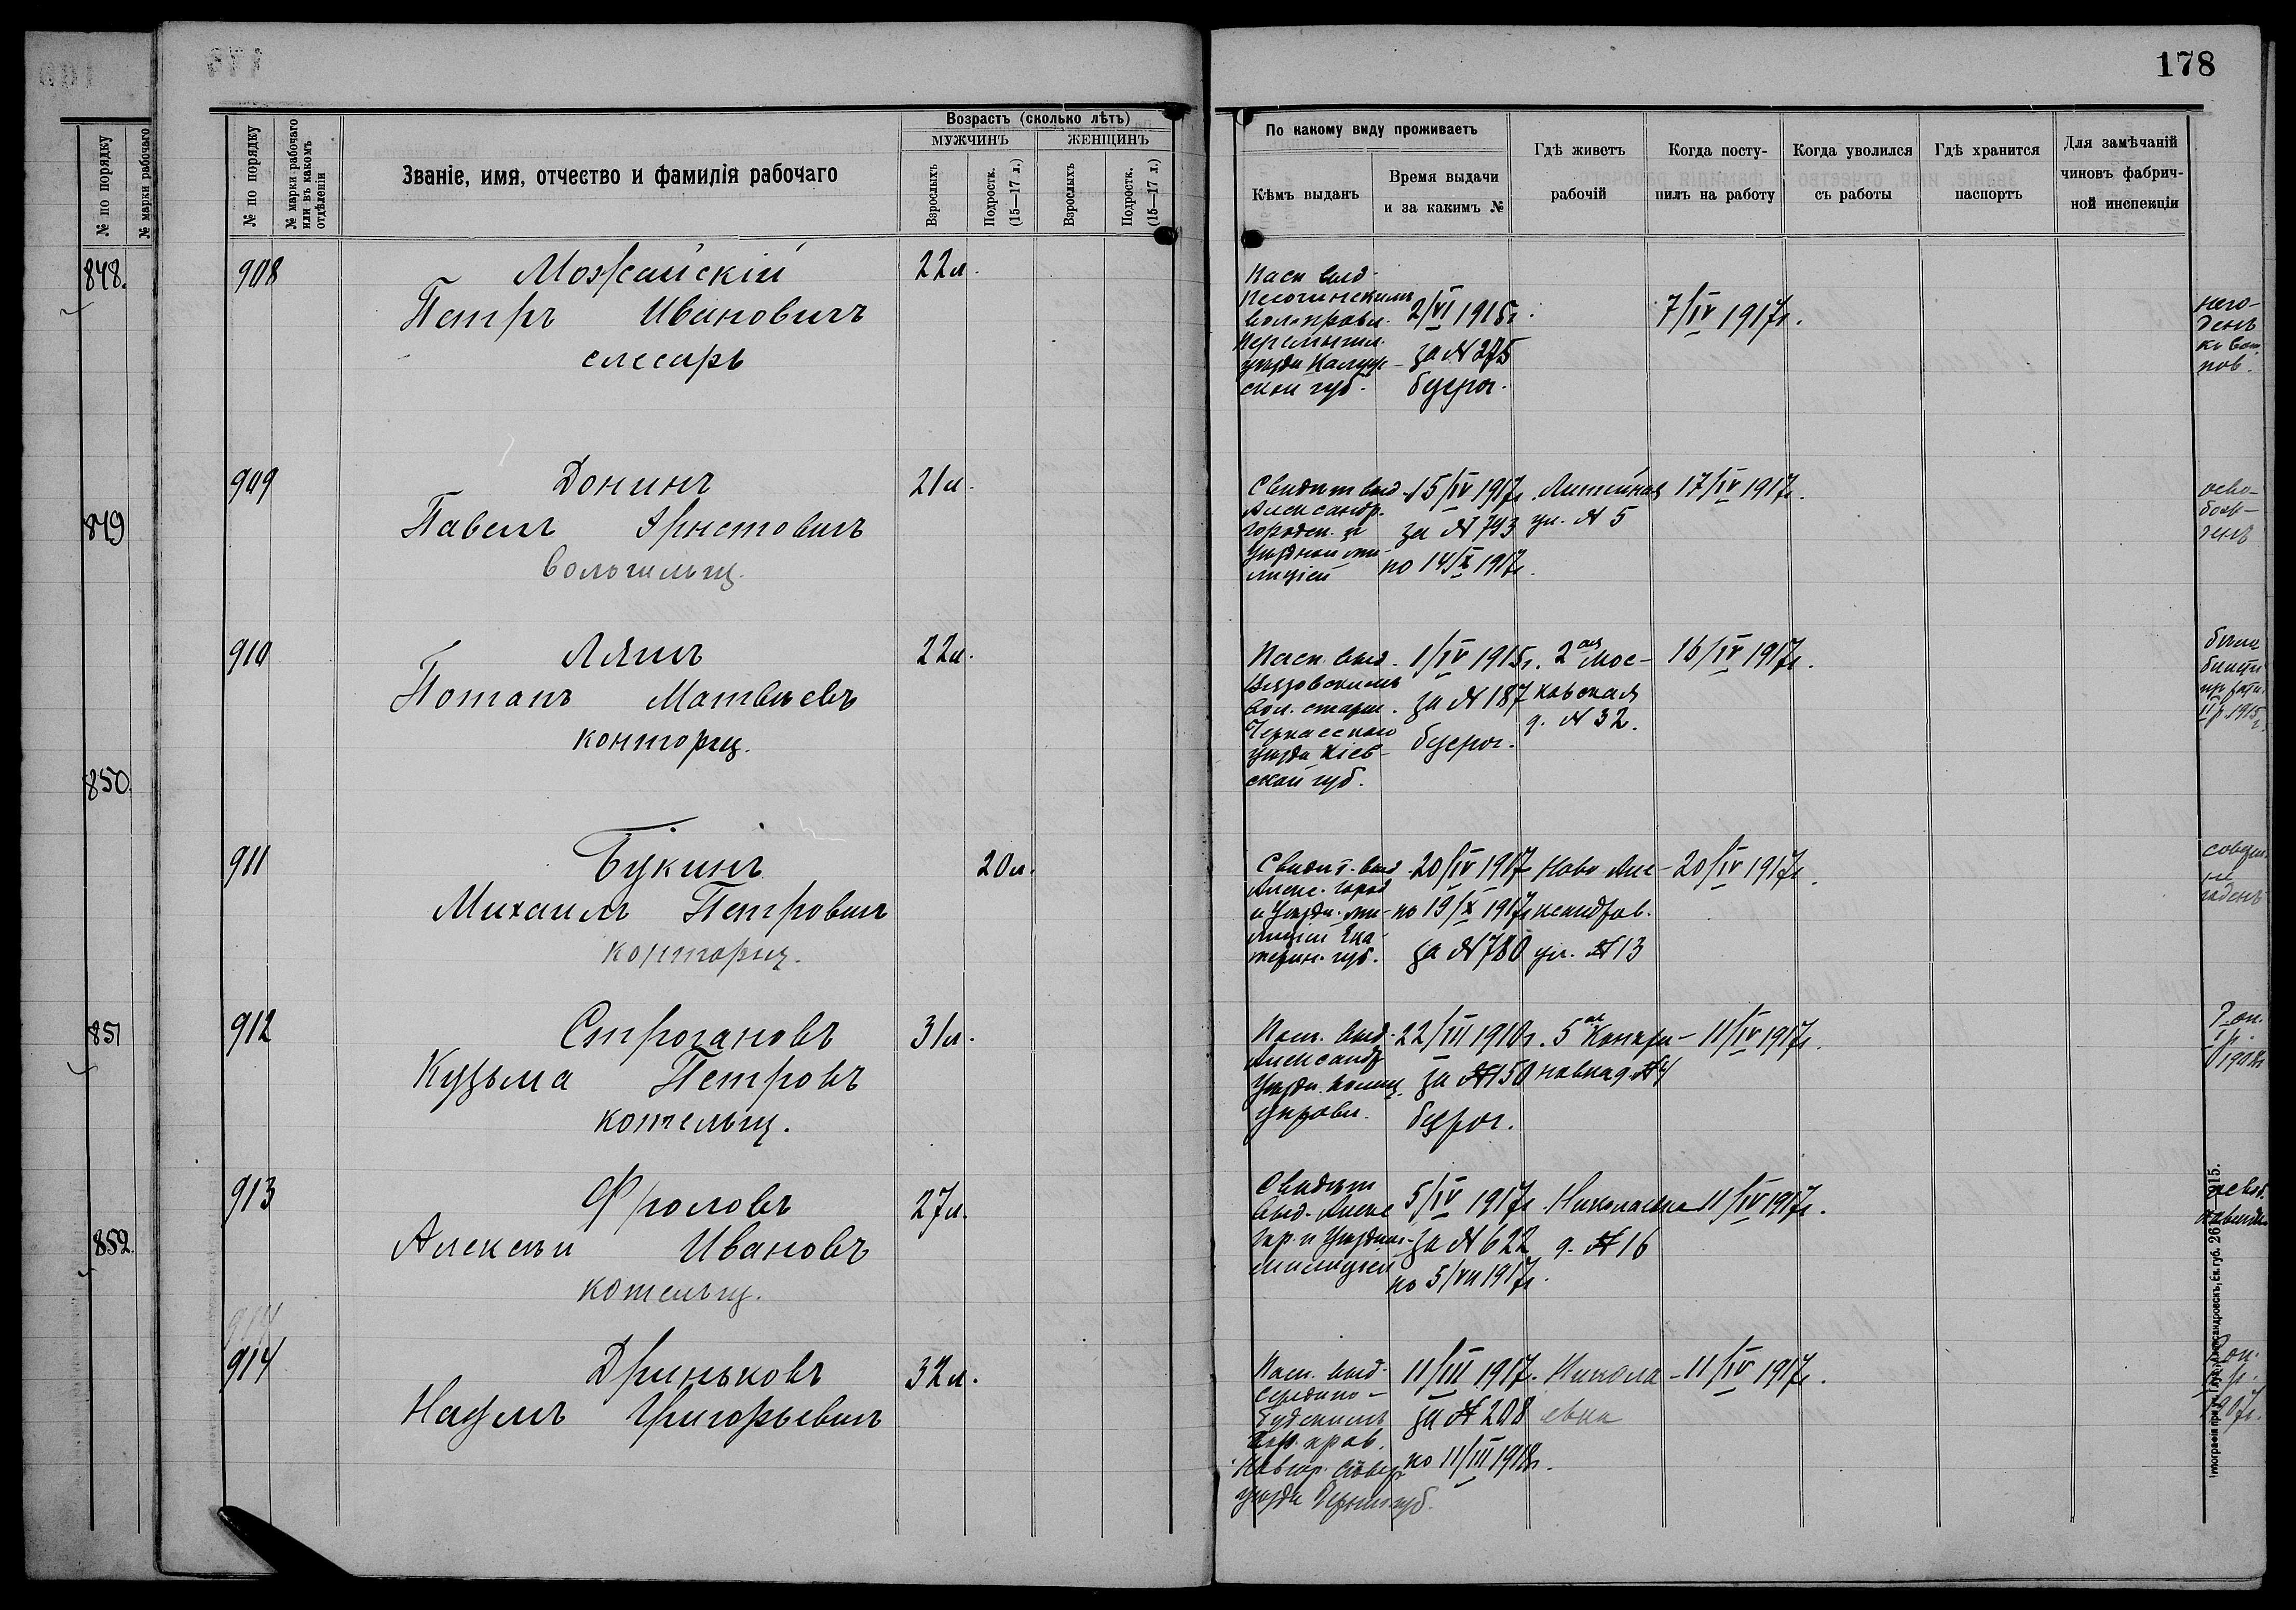 178
№ по порядку
№ марки рабочаго
848.
849
850
851
852
№ по порядку
№ марки рабочаго или въ какомъ отдѣленіи
Званіе, имя, отчество и фамилія рабочаго
Возрастъ (сколько лѣтъ)
МУЖЧИНЪ
ЖЕНЩИНЪ
Взрослыхъ
Подростк. (15—17 л.)
Взрослыхъ
Подростк. (15—17 л.)
По какому виду проживаетъ
Кѣмъ выданъ
Время выдачи
и за какимъ №
Гдѣ живетъ
рабочій
Когда посту-
пилъ на работу
Когда уволился
съ работы
Гдѣ хранится
паспортъ
Для замѣчаній
чиновъ фабрич-
ной инспекціи
908
Можайскій
22 л.
Петръ Ивановичъ
слесарь
Пасп. выд.
вол. правл.
уѣзда Калуж-
ской губ.
2/VI 1915 г.
за № 275
безсроч.
7/IV 1917 г.
него-
денъ
909
Донинъ
21 л.
Павелъ Христовичъ
Свидѣт. выд.
Александр.
городск. и
Уѣздной ми-
лиціей
15/IV 1917 г.
за № 793
по 14/X 1917 г.
Литейная
ул. № 5
17/IV 1917 г.
осво-
бож-
денъ
910
Ляшъ
22 л.
Потапъ Матвѣевъ
конторщ.
Пасп. выд.
Вязовскимъ
вол. старш.
Черкасскаго
уѣзда Кіев-
ской губ.
1/IV 1915 г.
за № 187
безсроч.
2ая Мос-
ковская
д. № 32.
16/IV 1917 г.
911
Букинъ
20 л.
Михаилъ Петровичъ
конторщ.
Свидѣт. выд.
Алекс. город.
и Уѣздн. ми-
лиціей Ека-
терин. губ.
20/IV 1917
по 19/X 1917 г.
за № 780
Ново Але-
ксандров.
ул. № 13
20/IV 1917 г.
соверш.
не
годенъ
912
Строгановъ
31 л.
Кузьма Петровъ
котельщ.
Пасп. выд.
Александр.
Уѣздн. полиц.
управл.
22/III 1910 г.
за № 150
безсроч.
11/IV 1917 г.
913
Фроловъ
27 л.
Алексѣй Ивановъ
котельщ.
Свидѣт.
выд. Алекс.
Гор. и Уѣздной
милиціей
5/IV 1917 г.
за № 622
по 5/VII 1917 г.
Николаевка
д. № 16
11/IV 1917 г.
914
914
Дриньковъ
32 л.
Григорьевичъ
Пасп. выд.
Середино-
Будскимъ
уѣзда Черниг. губ.
11/III 1917 г.
за № 208
по 11/III 1918 г.
Никола-
евка
11/IV 1917 г.